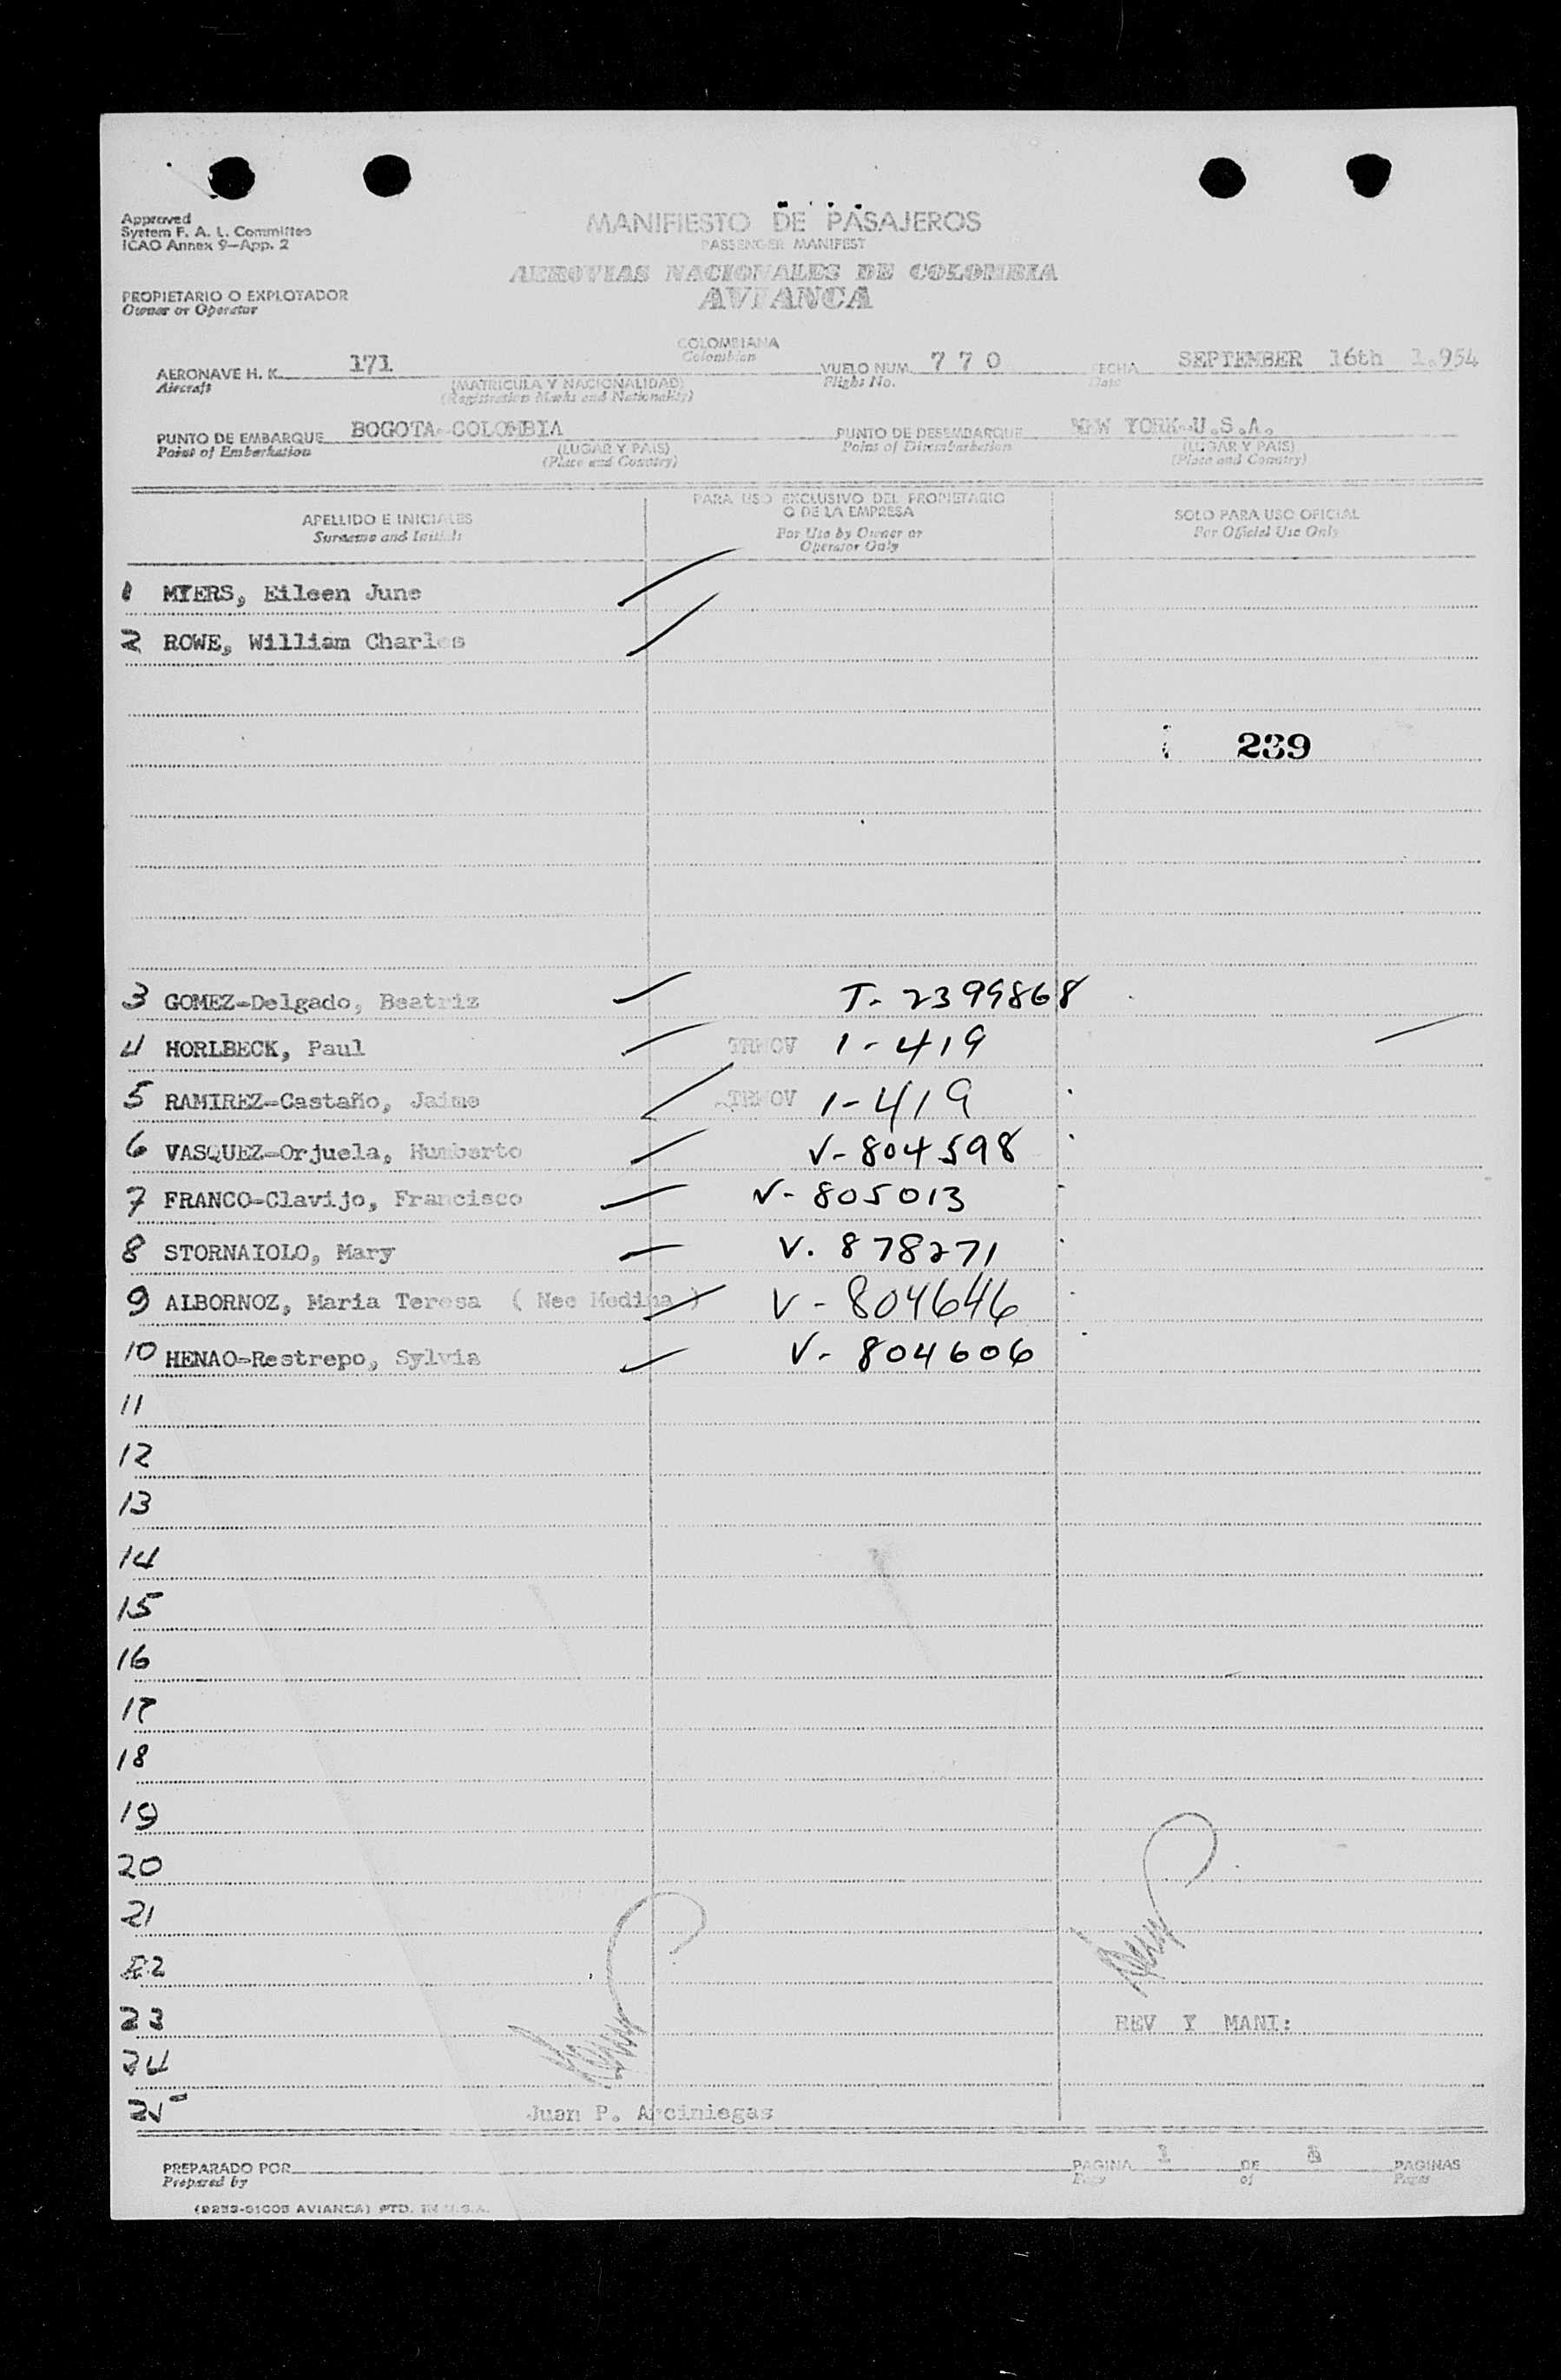 Approved
System F. A. L. Committee
ICAO Annex 9-App. 2
MANIFIESTO DE PASAJEROS
PASSENGER MANIFEST
AEROVIAS NACIONALES DE COLOMBIA
AVIANCA
PROPIETARIO O EXPLOTADOR
Owner or Operator
COLOMBIANA
Colombian
AERONAVE H. K. 171 VUELO NUM. 7 7 0 FECHA SEPTEMBER 16th 1.954
Aircraft (MATRICULA Y NACIONALIDAD) Flight No. Date
(Registration Marks and Nationality)
PUNTO DE EMBARQUE BOGOTA-COLOMBIA PUNTO DE DESEMBARQUE NEW YORK-U.S.A.
Point of Embarkation (LUGAR Y PAIS) Point of Disembarkation (LUGAR Y PAIS)
(Place and Country) (Place and Country)
APELLIDO E INICIALES PARA USO EXCLUSIVO DEL PROPIETARIO O DE LA EMPRESA SOLO PARA USO OFICIAL
Surname and Initials For Use by Owner or Operator Only For Official Use Only
1 MYERS, Eileen June
2 ROWE, William Charles
239
3 GOMEZ-Delgado, Beatriz T- 2399868
4 HORLBECK, Paul TRWOV 1-419
5 RAMIREZ-Castaño, Jaime TRWOV 1-419
6 VASQUEZ-Orjuela, Humberto V-804598
7 FRANCO-Clavijo, Francisco V-805013
8 STORNAIOLO, Mary V. 878271
9 ALBORNOZ, Maria Teresa ( Nee Medina ) V-804646
10 HENAO-Restrepo, Sylvia V- 804606
11
12
13
14
15
16
17
18
19
20
21
22
23
REV Y MANI:
24
25
Juan P. Arciniegas
PREPARADO POR PAGINA 1 DE PAGINAS
Prepared by Page of Pages
(2253-01005 AVIANCA) PTD. IN U.S.A.